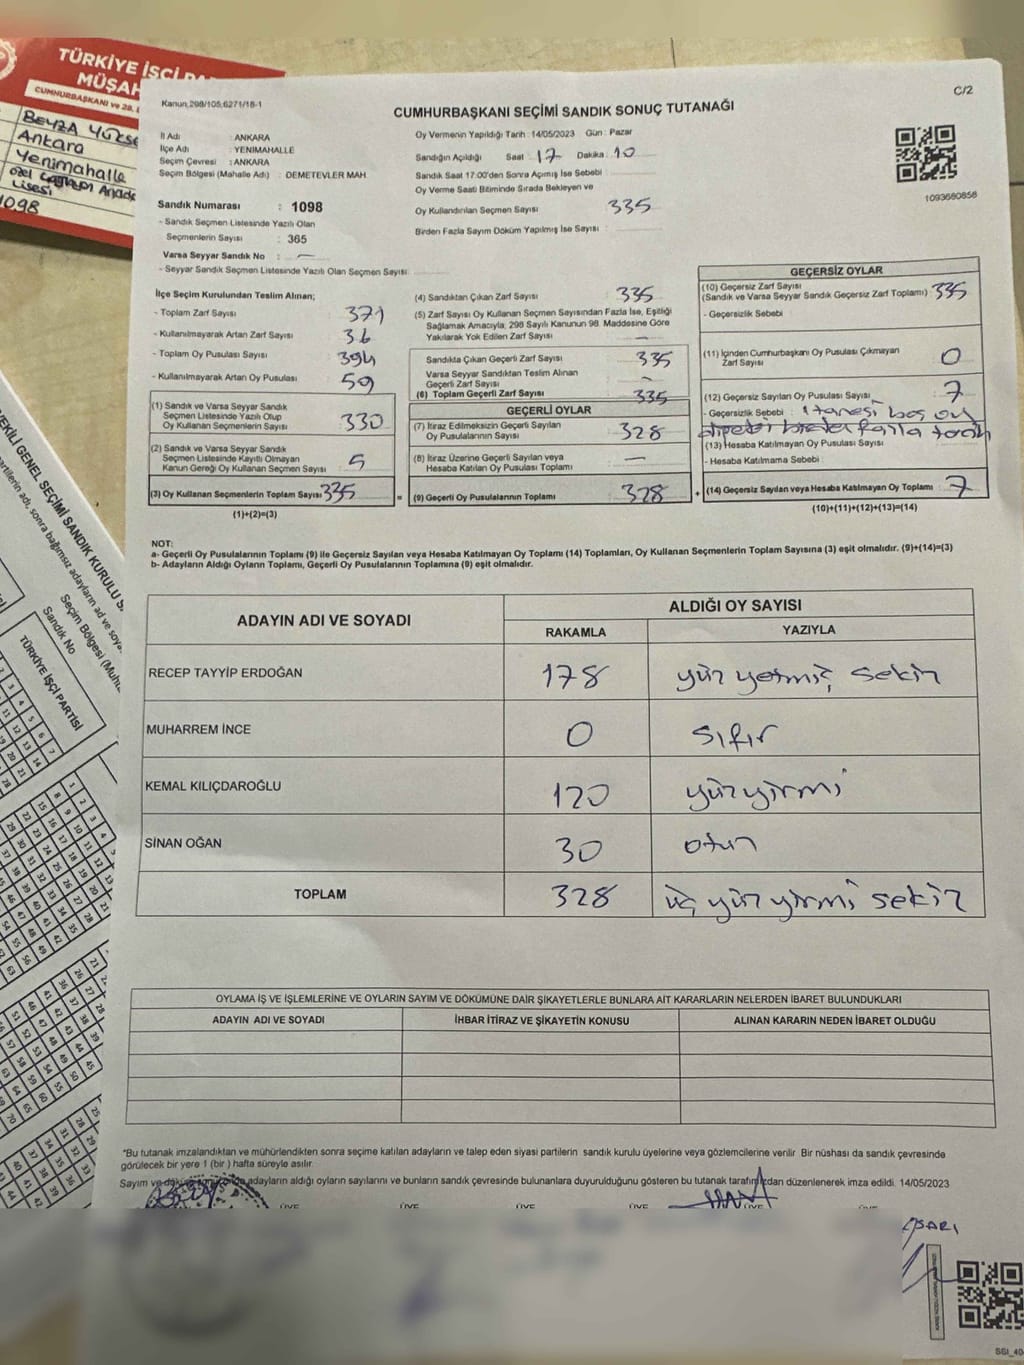 TÜRKİYE İŞÇİ
MÜŞAH
CUMHURBAŞKANI ve 28.
BEYZA
Ankara
Yenimahalle
özel
Lisesi
1098
Kanun,298/105,6271/18-1
C/2
CUMHURBAŞKANI SEÇİMİ SANDIK SONUÇ TUTANAĞI
İl Adı : ANKARA
İlçe Adı : YENİMAHALLE
Seçim Çevresi : ANKARA
Seçim Bölgesi (Mahalle Adı) : DEMETEVLER MAH
Oy Vermenin Yapıldığı Tarih : 14/05/2023 Gün : Pazar
Sandığın Açıldığı Saat : 17 Dakika : 10
Sandık Saat 17:00'den Sonra Açımış İse Sebebi :
Oy Verme Saati Bitiminde Sırada Bekleyen ve
Oy Kullandırılan Seçmen Sayısı : 335
Birden Fazla Sayım Döküm Yapılmış İse Sayısı :
1093660858
Sandık Numarası : 1098
- Sandık Seçmen Listesinde Yazılı Olan
Seçmenlerin Sayısı : 365
Varsa Seyyar Sandık No : —
- Seyyar Sandık Seçmen Listesinde Yazılı Olan Seçmen Sayısı:
İlçe Seçim Kurulundan Teslim Alınan;
- Toplam Zarf Sayısı : 371
- Kullanılmayarak Artan Zarf Sayısı : 36
- Toplam Oy Pusulası Sayısı : 394
- Kullanılmayarak Artan Oy Pusulası : 59
(1) Sandık ve Varsa Seyyar Sandık
Seçmen Listesinde Yazılı Olup
Oy Kullanan Seçmenlerin Sayısı : 330
(2) Sandık ve Varsa Seyyar Sandık
Seçmen Listesinde Kayıtlı Olmayan
Kanun Gereği Oy Kullanan Seçmen Sayısı : 5
(3) Oy Kullanan Seçmenlerin Toplam Sayısı : 335
(1)+(2)=(3)
=
(4) Sandıktan Çıkan Zarf Sayısı : 335
(5) Zarf Sayısı Oy Kullanan Seçmen Sayısından Fazla İse, Eşitliği
Sağlamak Amacıyla, 298 Sayılı Kanunun 98. Maddesine Göre
Yakılarak Yok Edilen Zarf Sayısı : —
Sandıkta Çıkan Geçerli Zarf Sayısı : 335
Varsa Seyyar Sandıktan Teslim Alınan
Geçerli Zarf Sayısı : —
(6) Toplam Geçerli Zarf Sayısı : 335
GEÇERLİ OYLAR
(7) İtiraz Edilmeksizin Geçerli Sayılan
Oy Pusulalarının Sayısı : 328
(8) İtiraz Üzerine Geçerli Sayılan veya
Hesaba Katılan Oy Pusulası Toplamı : —
(9) Geçerli Oy Pusulalarının Toplamı : 328
+
GEÇERSİZ OYLAR
(10) Geçersiz Zarf Sayısı
(Sandık ve Varsa Seyyar Sandık Geçersiz Zarf Toplamı) : 335
- Geçersizlik Sebebi :
(11) İçinden Cumhurbaşkanı Oy Pusulası Çıkmayan
Zarf Sayısı : 0
(12) Geçersiz Sayılan Oy Pusulası Sayısı : 7
- Geçersizlik Sebebi : 1 tanesi boş oy
birden fazla tercih
(13) Hesaba Katılmayan Oy Pusulası Sayısı :
- Hesaba Katılmama Sebebi :
(14) Geçersiz Sayılan veya Hesaba Katılmayan Oy Toplamı : 7
(10)+(11)+(12)+(13)=(14)
NOT:
a- Geçerli Oy Pusulalarının Toplamı (9) ile Geçersiz Sayılan veya Hesaba Katılmayan Oy Toplamı (14) Toplamları, Oy Kullanan Seçmenlerin Toplam Sayısına (3) eşit olmalıdır. (9)+(14)=(3)
b- Adayların Aldığı Oyların Toplamı, Geçerli Oy Pusulalarının Toplamına (9) eşit olmalıdır.
ADAYIN ADI VE SOYADI
ALDIĞI OY SAYISI
RAKAMLA YAZIYLA
RECEP TAYYİP ERDOĞAN 178 yüz yetmiş sekiz
MUHARREM İNCE 0 sıfır
KEMAL KILIÇDAROĞLU 120 yüzyirmi
SİNAN OĞAN 30 otuz
TOPLAM 328 üç yüz yirmi sekiz
OYLAMA İŞ VE İŞLEMLERİNE VE OYLARIN SAYIM VE DÖKÜMÜNE DAİR ŞİKAYETLERLE BUNLARA AİT KARARLARIN NELERDEN İBARET BULUNDUKLARI
ADAYIN ADI VE SOYADI İHBAR İTİRAZ VE ŞİKAYETİN KONUSU ALINAN KARARIN NEDEN İBARET OLDUĞU
*Bu tutanak imzalandıktan ve mühürlendikten sonra seçime katılan adayların ve talep eden siyasi partilerin sandık kurulu üyelerine veya gözlemcilerine verilir Bir nüshası da sandık çevresinde
görülecek bir yere 1 (bir ) hafta süreyle asılır
Sayım ve adayların aldığı oyların sayılarını ve bunların sandık çevresinde bulunanlara duyurulduğunu gösteren bu tutanak tarafımızdan düzenlenerek imza edildi. 14/05/2023
ÜYE ÜYE ÜYE ÜYE ÜYE
VEKİLİ GENEL SEÇİMİ SANDIK KURULU
partilerin adı, sonra bağımsız adayların ad ve
Seçim Bölgesi
Sandık No
TÜRKİYE İŞÇİ PARTİSİ